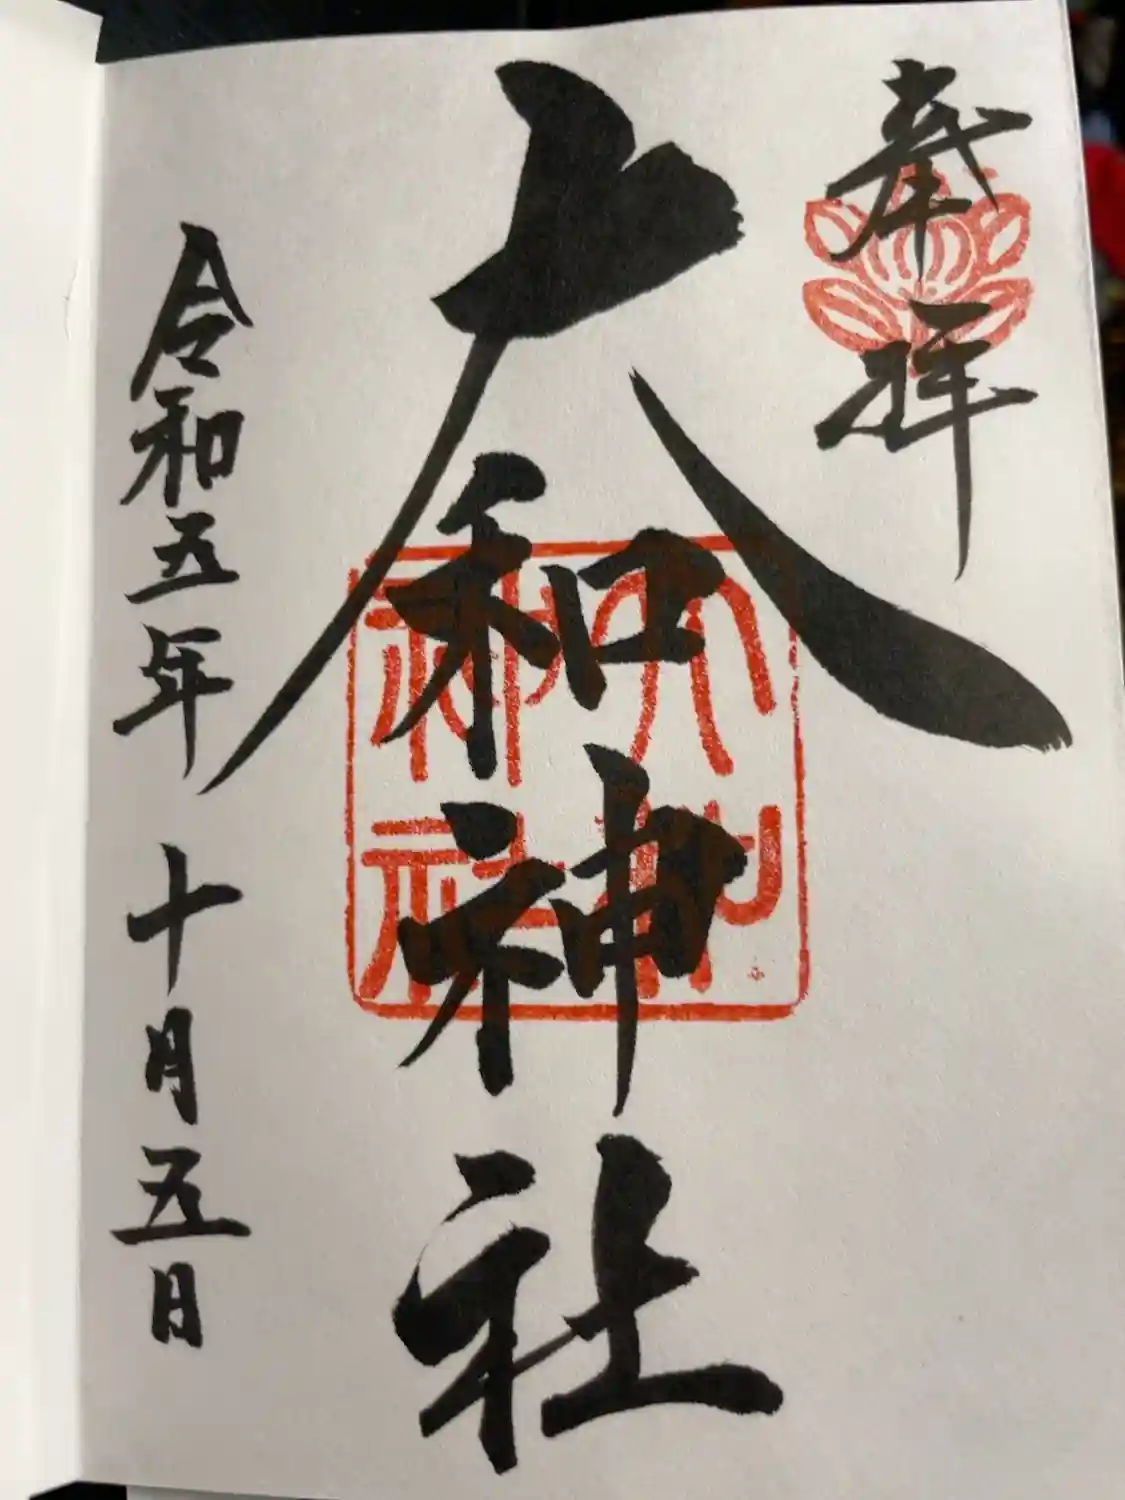 奉拝
大和神社
大和
神社
令和五年 十月五日